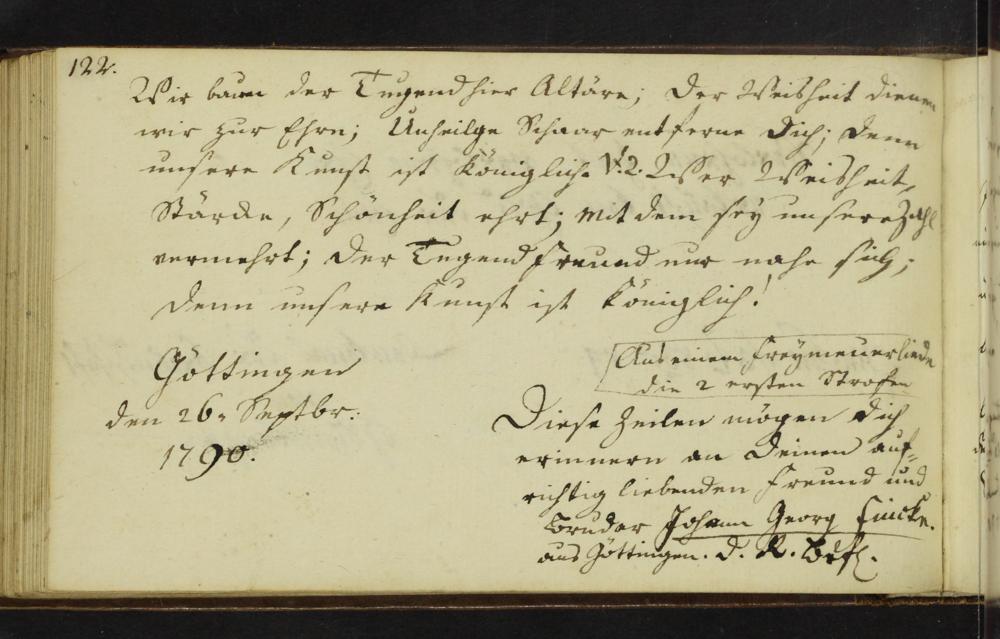 122.
Wir baun der Tugend hier Altäre; Der Weisheit dienen
wir zur Ehre; Unheilge Schaar entferne Dich; Denn
unsere Kunst ist Königlich. V. 2. Wer Weisheit,
Stärcke, Schönheit ehrt; Mit dem sey unsere Zahl
vermehrt; Der Tugend Freund nur nahe sich;
Denn unsere Kunst ist Königlich!
Göttingen
den 26. Septbr:
1790.
Aus einem Freymeuerliede
die 2 ersten Strofen
Diese Zeilen mögen Dich
erinnern an Deinen auf-
richtig liebenden Freund und
Bruder Johann Georg Fincke.
aus Göttingen. d. R.